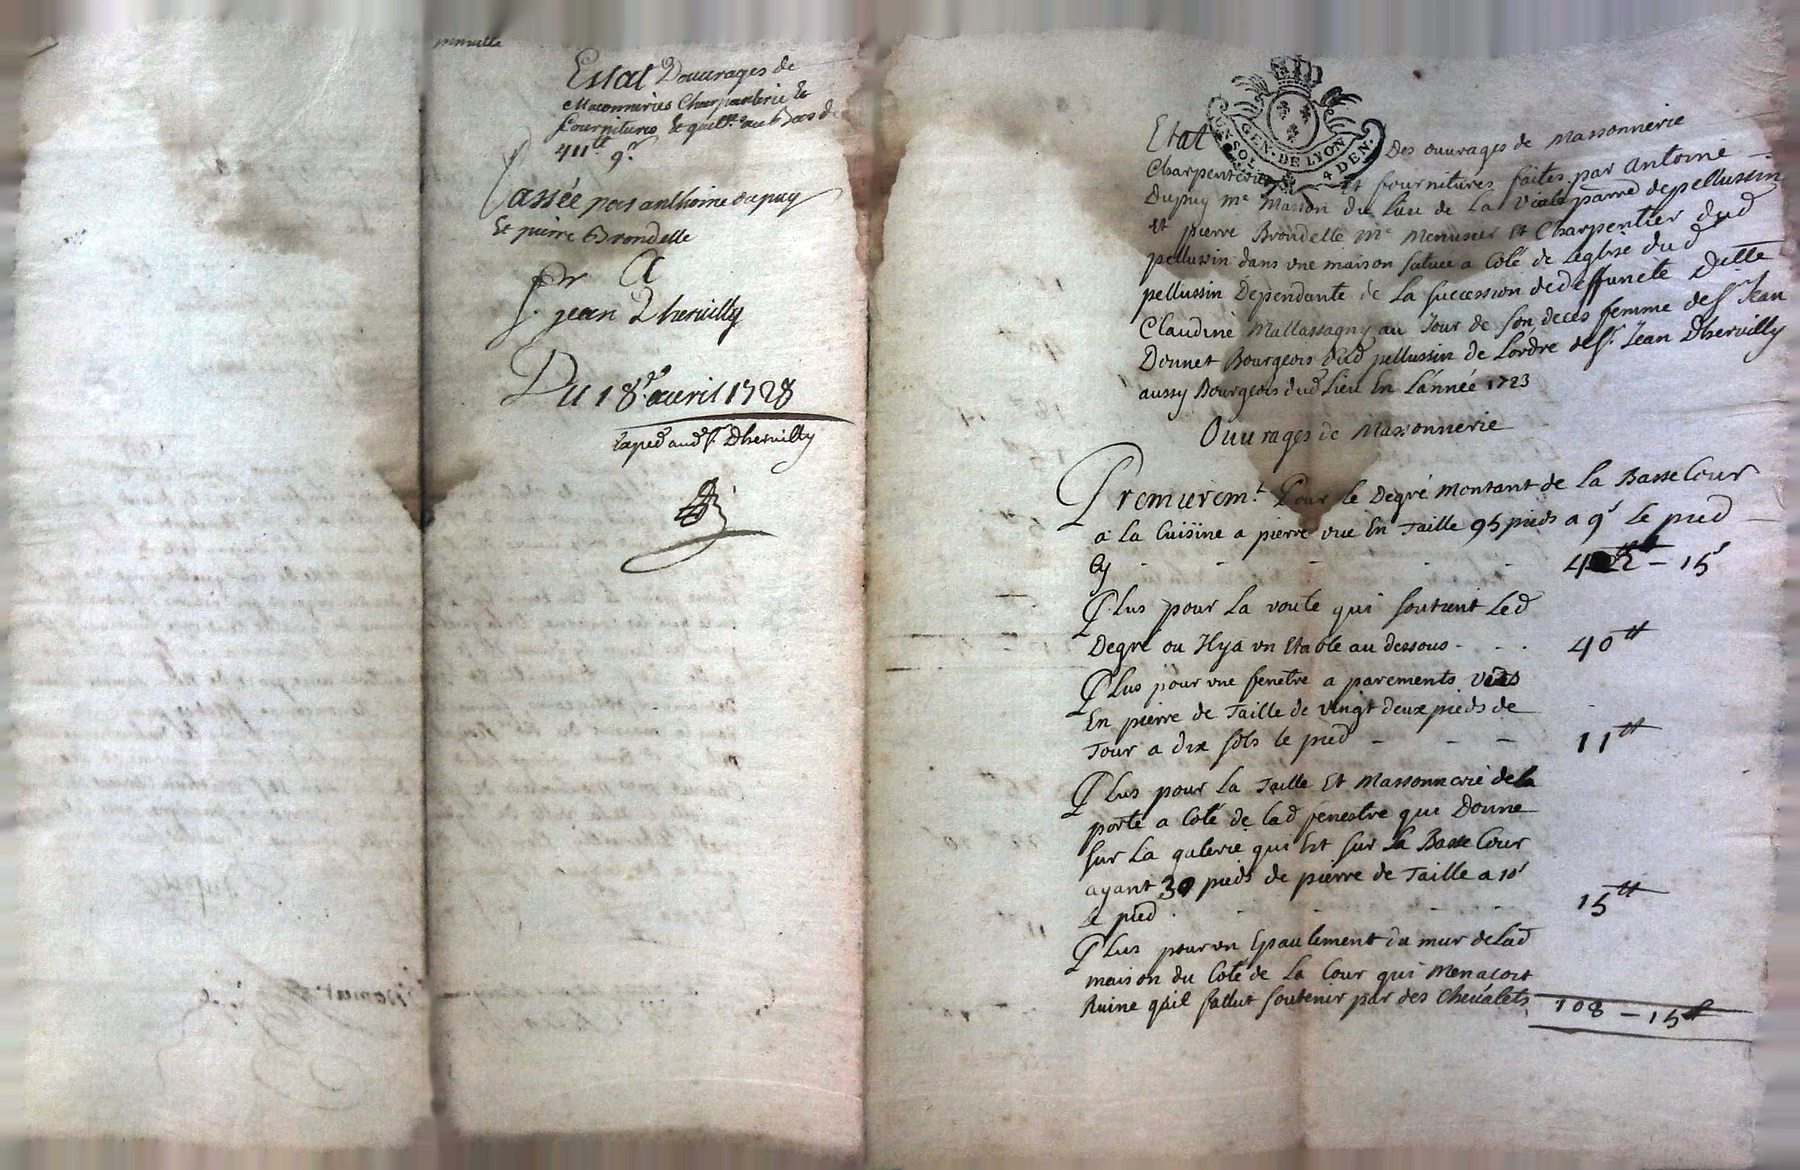 Estat Douvrages de
Maconneries Charpanterie Et
fournitures Et quitt.ce au bas de
411tt 9s
passée par anthoine dupuy
Et pierre Brondelle
A
Sr jean Dhervilly
Du 18.e avril 1728
Exped aud Sr. Dhervilly
GEN. DE LYON
UN SOL 4 DEN.
Etat Des ouvrages de Massonnerie
Charpenterie Et fournitures faites par Antoine
Dupuy me Masson du lieu de La parre de pellussin
Et pierre Brondelle Me Menusier Et Charpentier dud
pellussin dans une maison scituée a Coté de Leglise dud
pellussin Dependante de La succession de deffuncte ditte
Claudine Mallassagny au Jour de son deces femme de Sr Jean
Donnet Bourgeois dud pellussin de Lordre de Sr. Jean Dhervilly
aussy Bourgeois dud Lieu En Lannée 1723
Ouvrages de Massonnerie
Premierem.t Pour le Degré Montant de La Basse Cour
a La Cuisine a pierre vue En Taille 95 pieds a 9s Le pied
Cy - - - - 42tt - 15s
Plus pour La voute qui soutient Led
Degré ou Ilya un Etable au dessous - . . 40tt
Plus pour une fenetre a parements
En pierre de Taille de vingt deux pieds de
Tour a dix sols le pied - - - 11tt
Plus pour La Taille Et Massonnerie de la
porte a Coté de Lad fenestre qui Donne
sur La galerie qui Est sur La Basse Cour
ayant 30 pieds de pierre de Taille a 10s
le pied . - - - - 15tt
Plus pour un Epaulement du mur de Lad
maison du Coté de La Cour qui Menacoit
Ruine quil fallut soutenir par des Chevalets
108 - 15s